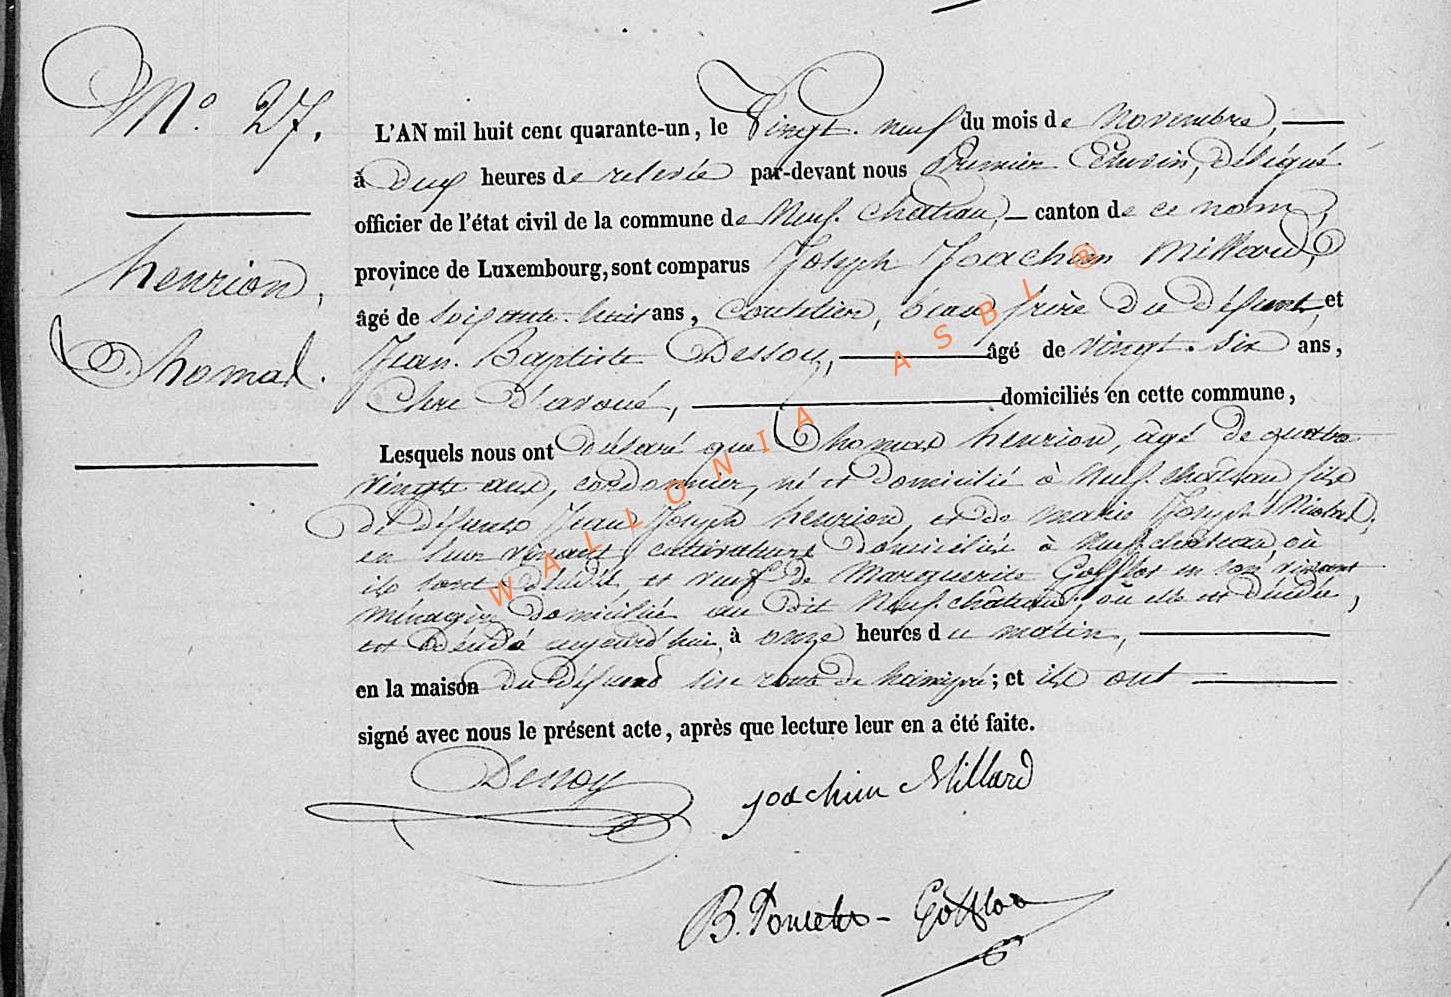 N.° 27.
henrion,
Thomas.
L'AN mil huit cent quarante-un, le Vingt-neuf du mois de Novembre,
à Deux heures de relevée par-devant nous Premier Echevin, Délégué
officier de l'état civil de la commune de Neuf-château, canton de ce nom,
province de Luxembourg, sont comparus Joseph Joachim Millard,
âgé de soixante-huit ans, Coutelier, beau frère du défunt, et
Jean-Baptiste Dessoy, âgé de vingt-six ans,
Clerc d'avoué, domiciliés en cette commune,
Lesquels nous ont déclaré que Thomas henrion, âgé de quatre
vingts ans, cordonnier, né et domicilié à Neufchâteau fils
de défunts Jean Joseph henrion, et de marie Joseph
en leur vivant, cultivateurs domiciliés à Neufchâteau, où
ils sont décédés et veuf de Marguerite Gofflot en son vivant
ménagère domiciliée au dit Neufchâteau, où elle est décédée,
est décédé aujourd'hui, à onze heures du matin,
en la maison du défunt sise rue de ; et ils ont
signé avec nous le présent acte, après que lecture leur en a été faite.
Dessoy
Joachim Millard
B. Poncelet-Gofflot
WALLONIA ASBL ®